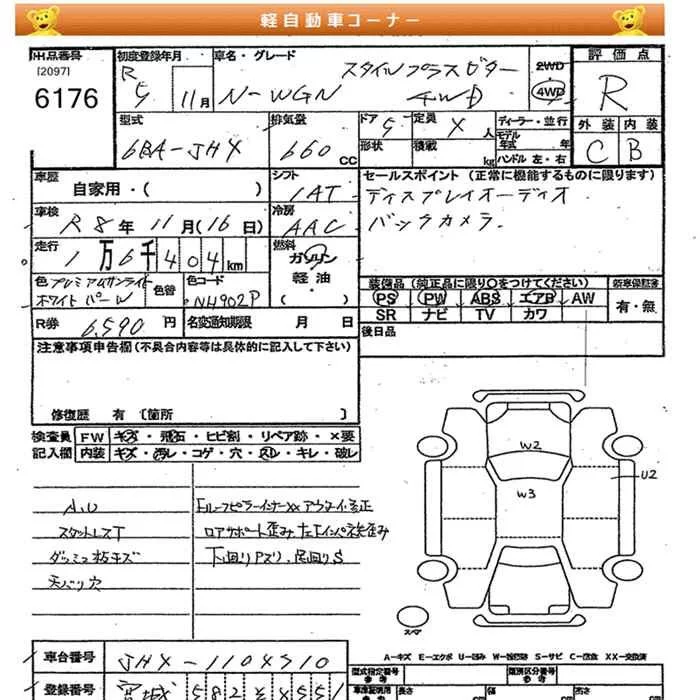 軽自動車コーナー
出品番号
[2097]
6176
初度登録年月
R5 11月
車名・グレード
スタイルプラスビター
N-WGN 4WD
2WD
4WD
評価点
R
外装 内装
C B
型式
6BA-JH4
排気量
660 cc
ドア 5
形状
定員 4 人
積載 kg
ディーラー・並行
モデル年式 年
ハンドル 左・右
車歴
自家用・( )
シフト
IAT
セールスポイント (正常に機能するものに限ります)
ディスプレイオーディオ
バックカメラ
車検
R8年 11月(16日)
冷房
AAC
走行
1万6千404km
燃料
ガソリン
軽油
・( )
色 プレミアムサンライト
ホワイトパール
色替
色コード
NH902P
装備品 (純正品に限り○をつけてください)
PS PW ABS エアB AW
SR ナビ TV カワ
新車保証書
有・無
R券 6,590円
名変通知期限 月 日
後日品
注意事項申告欄 (不具合内容等は具体的に記入して下さい)
修復歴 有 [箇所 ]
検査員 FW キズ・飛石・ヒビ割・リペア跡・×要
記入欄 内装 キズ・汚レ・コゲ・穴・スレ・キレ・破レ
A.U
スタットレスT
ダッシュ板キズ
天バリ穴
下回りPズリ、尾回りS
W2
W3
U2
スペア
A-キズ E-エクボ U-凹み W-補修跡 S-サビ C-腐食 XX-交換済
車台番号 JH4-1104510
登録番号 宮城 582
型式指定番号
類別区分番号
車庫証明用参考
長さ
幅
高さ